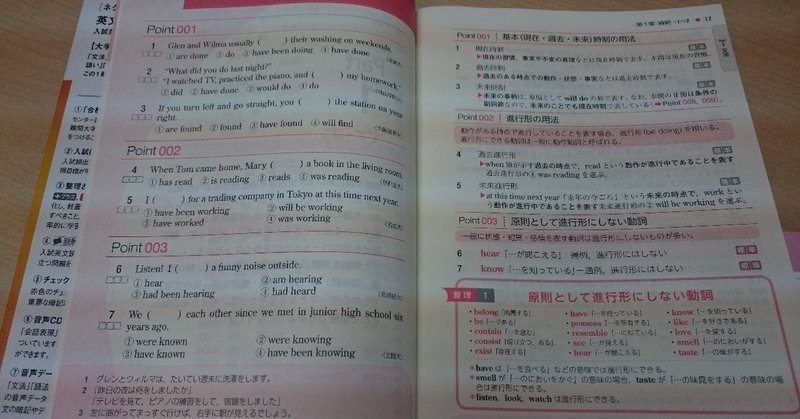 Point 001
1 Glen and Wilma usually ( ) their washing on weekends.
① are done ② do ③ have been doing ④ have done
2 "What did you do last night?"
"I watched TV, practiced the piano, and ( ) my homework."
① did ② have done ③ would do ④ do
3 If you turn left and go straight, you ( ) the station on your
right.
① are found ② found ③ have found ④ will find
Point 002
4 When Tom came home, Mary ( ) a book in the living room.
① has read ② is reading ③ reads ④ was reading
5 I ( ) for a trading company in Tokyo at this time next year.
① have been working ② will be working
③ have worked ④ was working
Point 003
6 Listen! I ( ) a funny noise outside.
① hear ② am hearing
③ had been hearing ④ had heard
7 We ( ) each other since we met in junior high school six
years ago.
① were known ② were knowing
③ have known ④ have been knowing
1 グレンとウィルマは、たいてい週末に洗濯をします。
2 「昨日の夜は何をしましたか」
「テレビを見て、ピアノの練習をして、宿題をしました」
3 左に曲がってまっすぐ行けば、右手に駅が見えるでしょう。
第1章 時制 1~7 17
Point 001 基本(現在・過去・未来)時制の用法
1 現在時制
▶現在の習慣、事実や不変の真理などは現在時制で表す。本問は現在の習慣。
2 過去時制
▶過去のある時点での動作・状態・事実などは過去時制で表す。
3 未来時制
▶未来の事柄は、原則として will do の形で表す。なお、本問の if 節は条件の
副詞節なので、未来のことでも現在時制で表している(➡Point 008, 009)。
Point 002 進行形の用法
動作がある時点で進行していることを表す場合、進行形(be doing)を用いる。
進行形にできる動詞は一般に動作動詞と呼ばれる。
4 過去進行形
▶when 節が示す過去の時点で、read という動作が進行中であることを表す
過去進行形の④ was reading を選ぶ。
5 未来進行形
▶at this time next year「来年の今ごろ」という未来の時点で、work とい
う動作が進行中であることを表す未来進行形の② will be working を選ぶ。
Point 003 原則として進行形にしない動詞
一般に状態・知覚・感情を表す動詞は進行形にしないものが多い。
6 hear「…が聞こえる」 通例、進行形にはしない
標準
7 know「…を知っている」 通例、進行形にはしない
標準
整理 1 原則として進行形にしない動詞
• belong「所属する」 • have「…を持っている」 • know「…を知っている」
• be「…である」 • possess「…を所有する」 • like「…を好きである」
• contain「…を含む」 • resemble「…に似ている」 • love「…を愛する」
• consist「成り立つ、ある」 • see「…が見える」 • smell「…のにおいがする」
• exist「存在する」 • hear「…が聞こえる」 • taste「…の味がする」
• have は「…を食べる」などの意味では進行形にできる。
• smell が「…のにおいをかぐ」の意味の場合、taste が「…の味見をする」の意味の場
合は進行形にできる。
• listen, look, watch は進行形にできる。